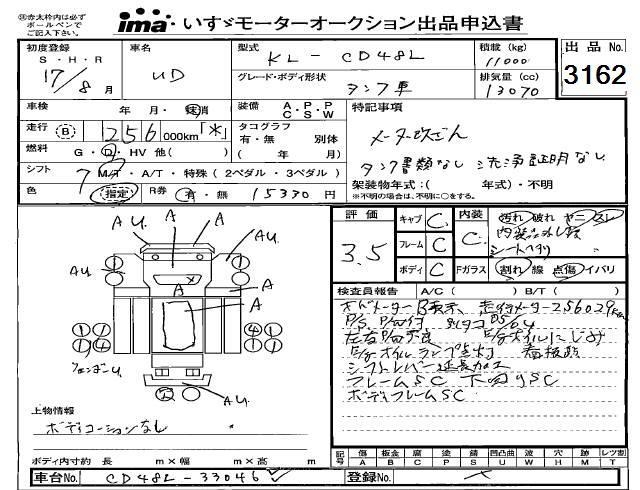 ㊟赤太枠内は必ず
ボールペンで
ご記入下さい。
ima いすゞモーターオークション出品申込書
初度登録
S・H・R
17/8月
車名
UD
型式
KL-CD48L
積載 (kg)
11000
グレード・ボディ形状
タンク車
排気量 (cc)
13070
出品 No.
3162
車検 年 月・抹消
装備 A・P・P C・S・W
特記事項
走行 B 256 000km「*」
タコグラフ 有・無 別体
( 年 月)
メーター改ざん
燃料 G・D・HV 他( )
タンク書類なし 洗浄証明なし
シフト 7 M/T・A/T・特殊 (2ペダル・3ペダル)
架装物年式:( 年式)・不明
※不明の場合は、不明に○をする。
色 指定 R券 有・無 15330 円
評価
3.5
キャブ C
フレーム C
ボディ C
内装 C
汚れ 破れ ヤニ スレ
シートヘタリ
Fガラス 割れ 線 点傷 イバリ
AU. A A AU.
AU. A AU.
A A
A
AU.
検査員報告 A/C( ) B/T( )
オドメーターB表示 走行メーター256029km
シフトレバー延長加工
フレームSC 下回りSC
ボディフレームSC
上物情報
ボディコーションなし
ボディ内寸約 長 m×幅 m×高 m
記号 傷A 板金B 腐C 塗P 錆S 凹凸曲U 波W 穴H 跡M レツ割T
車台No. CD48L-33046
登録No.